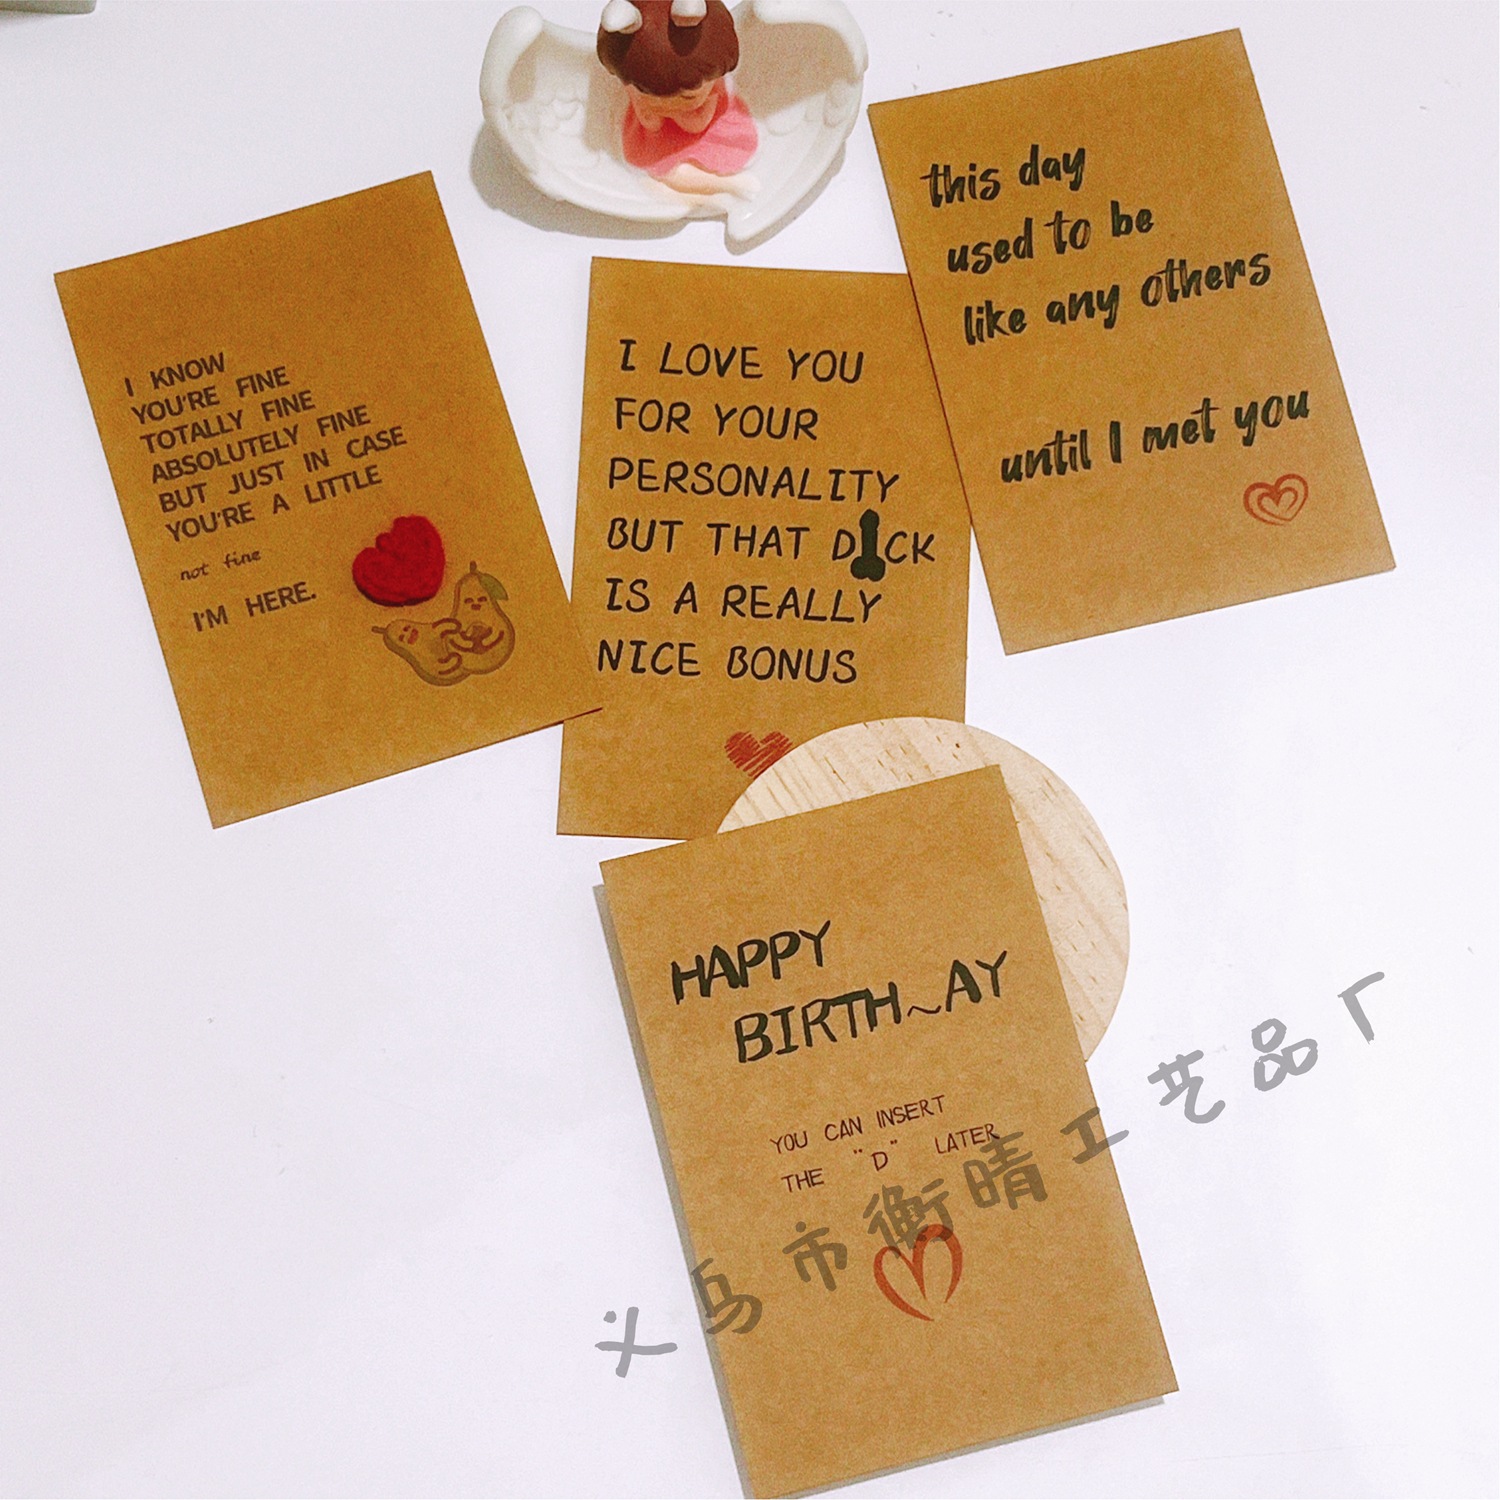 I KNOW
YOU'RE FINE
TOTALLY FINE
ABSOLUTELY FINE
BUT JUST IN CASE
YOU'RE A LITTLE
not fine
I'M HERE.
I LOVE YOU
FOR YOUR
PERSONALITY
BUT THAT D CK
IS A REALLY
NICE BONUS
this day
used to be
like any others
until I met you
HAPPY
BIRTH~AY
YOU CAN INSERT
THE "D" LATER
义乌市衡晴工艺品厂